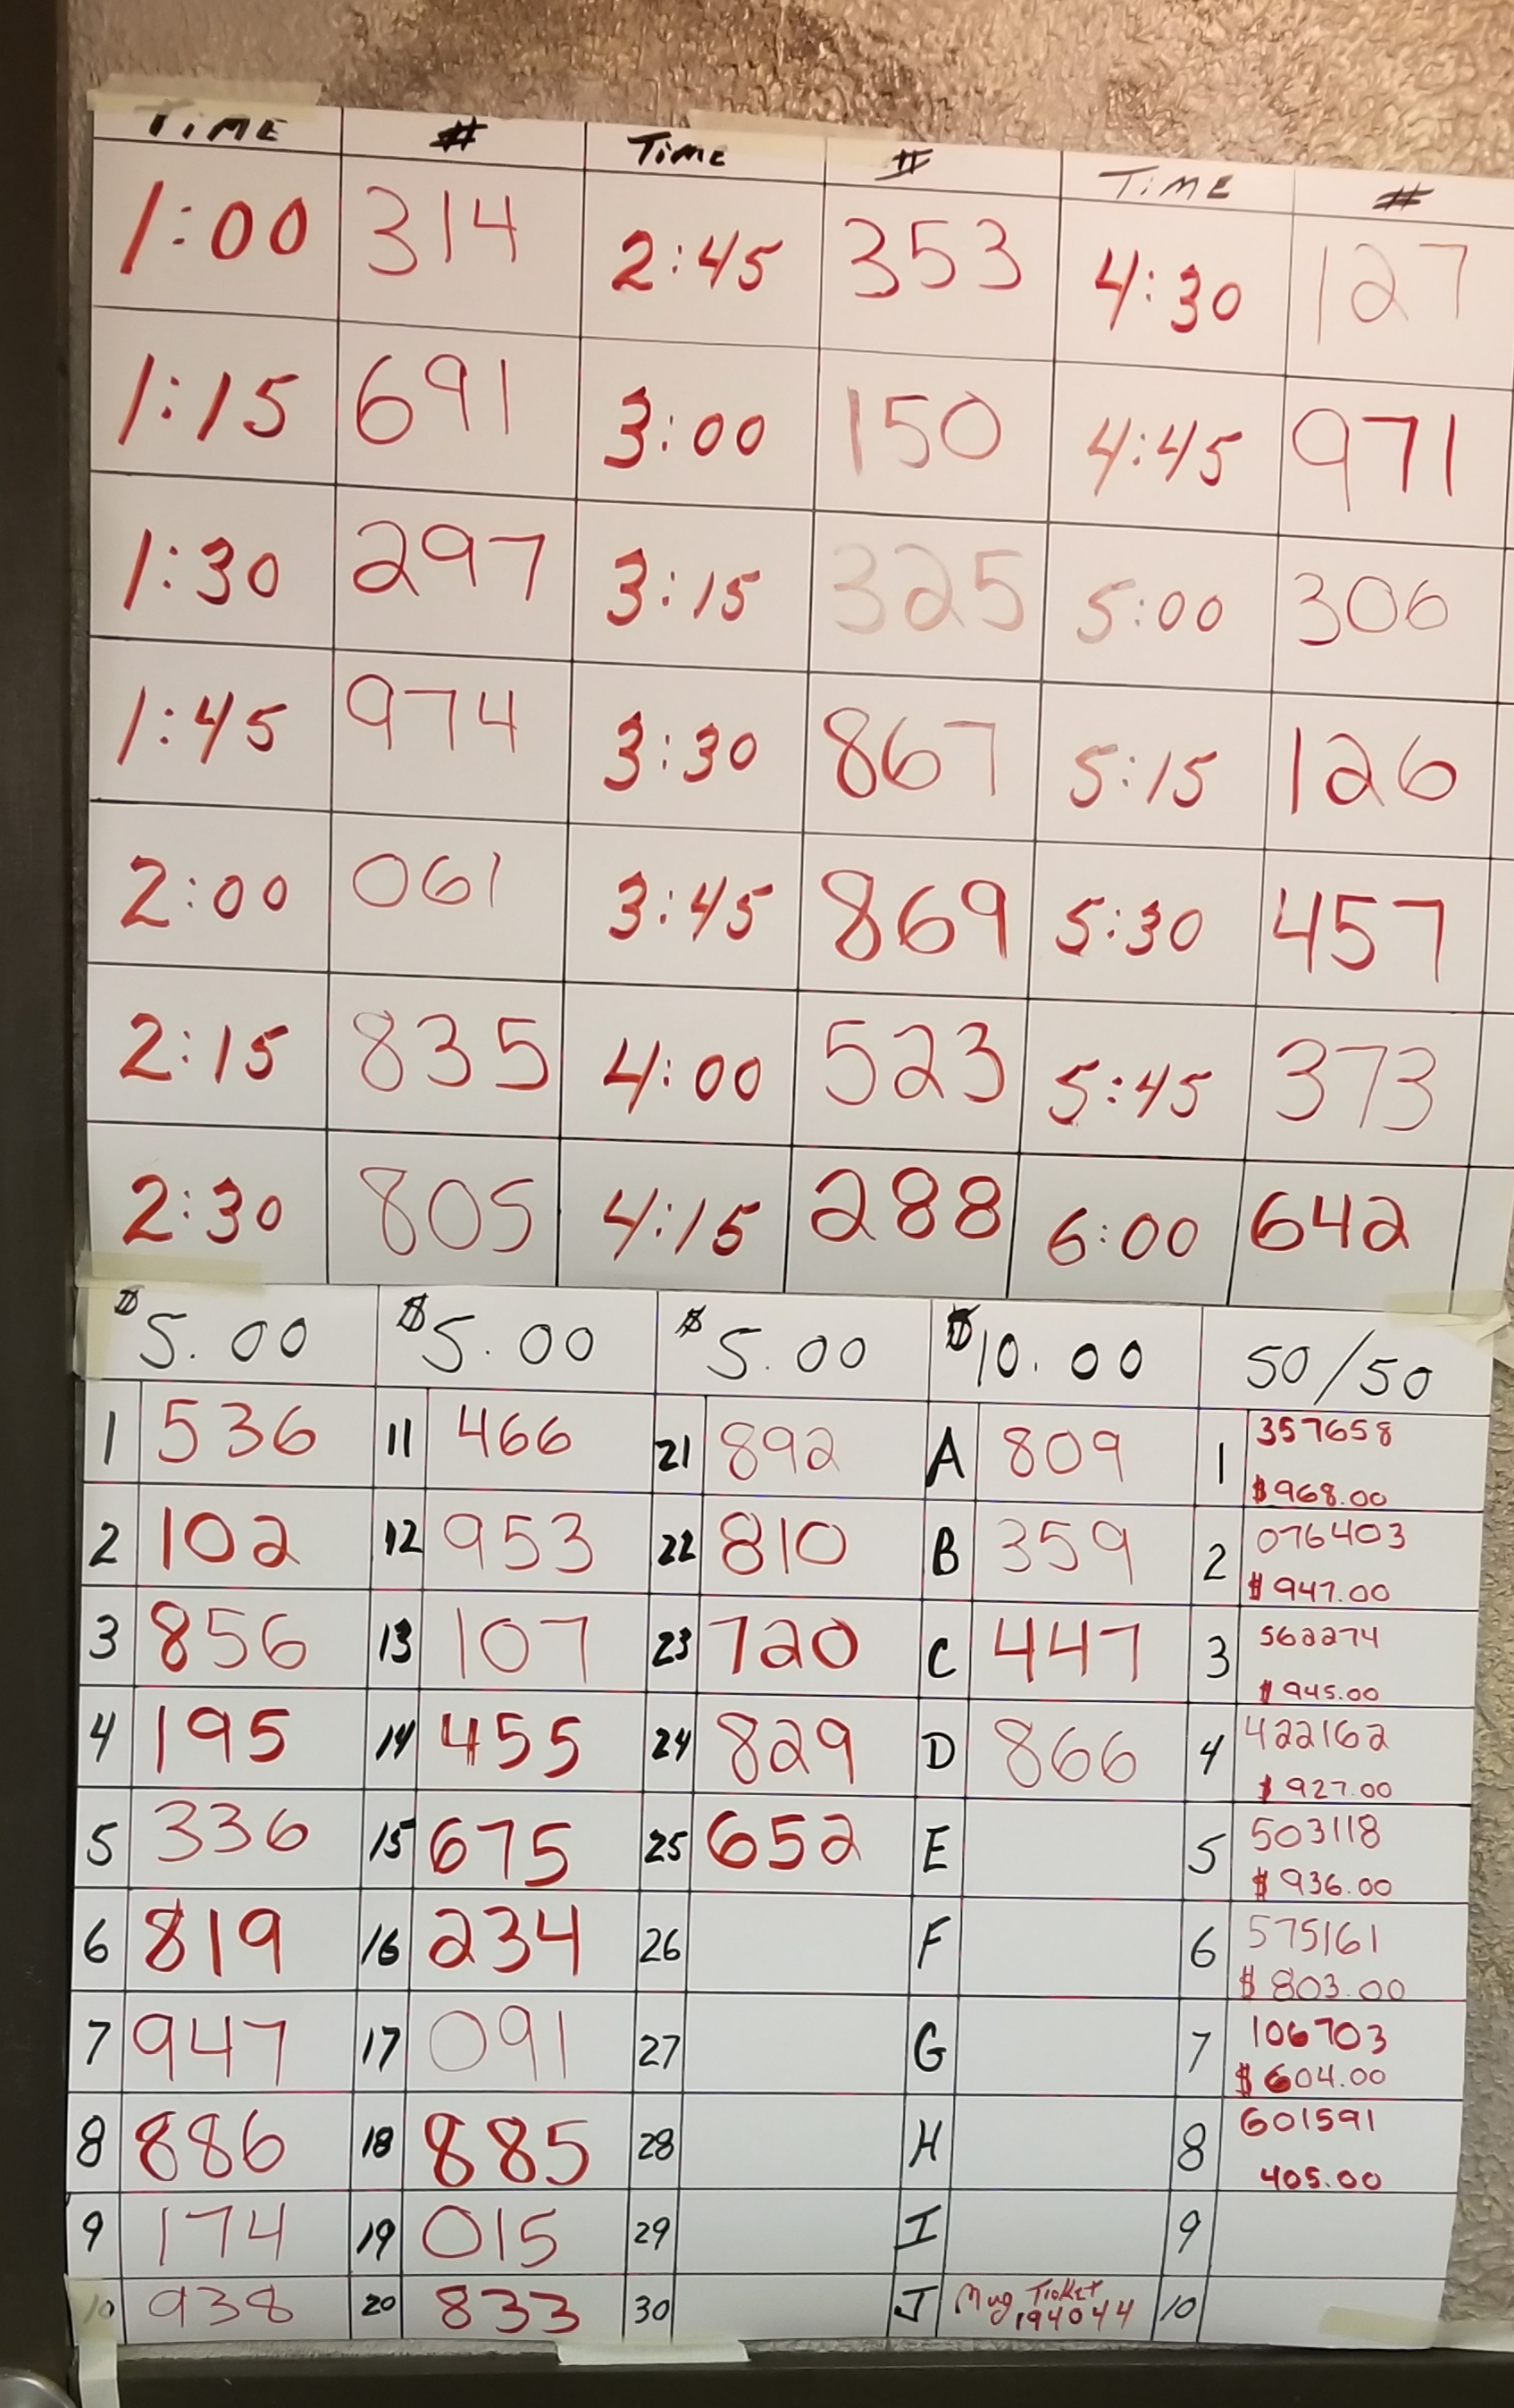 TIME # TIME # TIME #
1:00 314 2:45 353 4:30 127
1:15 691 3:00 150 4:45 971
1:30 297 3:15 325 5:00 306
1:45 974 3:30 867 5:15 126
2:00 061 3:45 869 5:30 457
2:15 835 4:00 523 5:45 373
2:30 805 4:15 288 6:00 642
$5.00 $5.00 $5.00 $10.00 50/50
1 536 11 466 21 892 A 809 1 357658
$968.00
2 102 12 953 22 810 B 359 2 076403
$947.00
3 856 13 107 23 720 C 447 3 562274
$945.00
4 195 14 455 24 829 D 866 4 422162
$927.00
5 336 15 675 25 652 E 5 503118
$936.00
6 819 16 234 26 F 6 575161
$803.00
7 947 17 091 27 G 7 106703
$604.00
8 886 18 885 28 H 8 601591
405.00
9 174 19 015 29 I 9
10 938 20 833 30 J Mug Ticket 10
194044